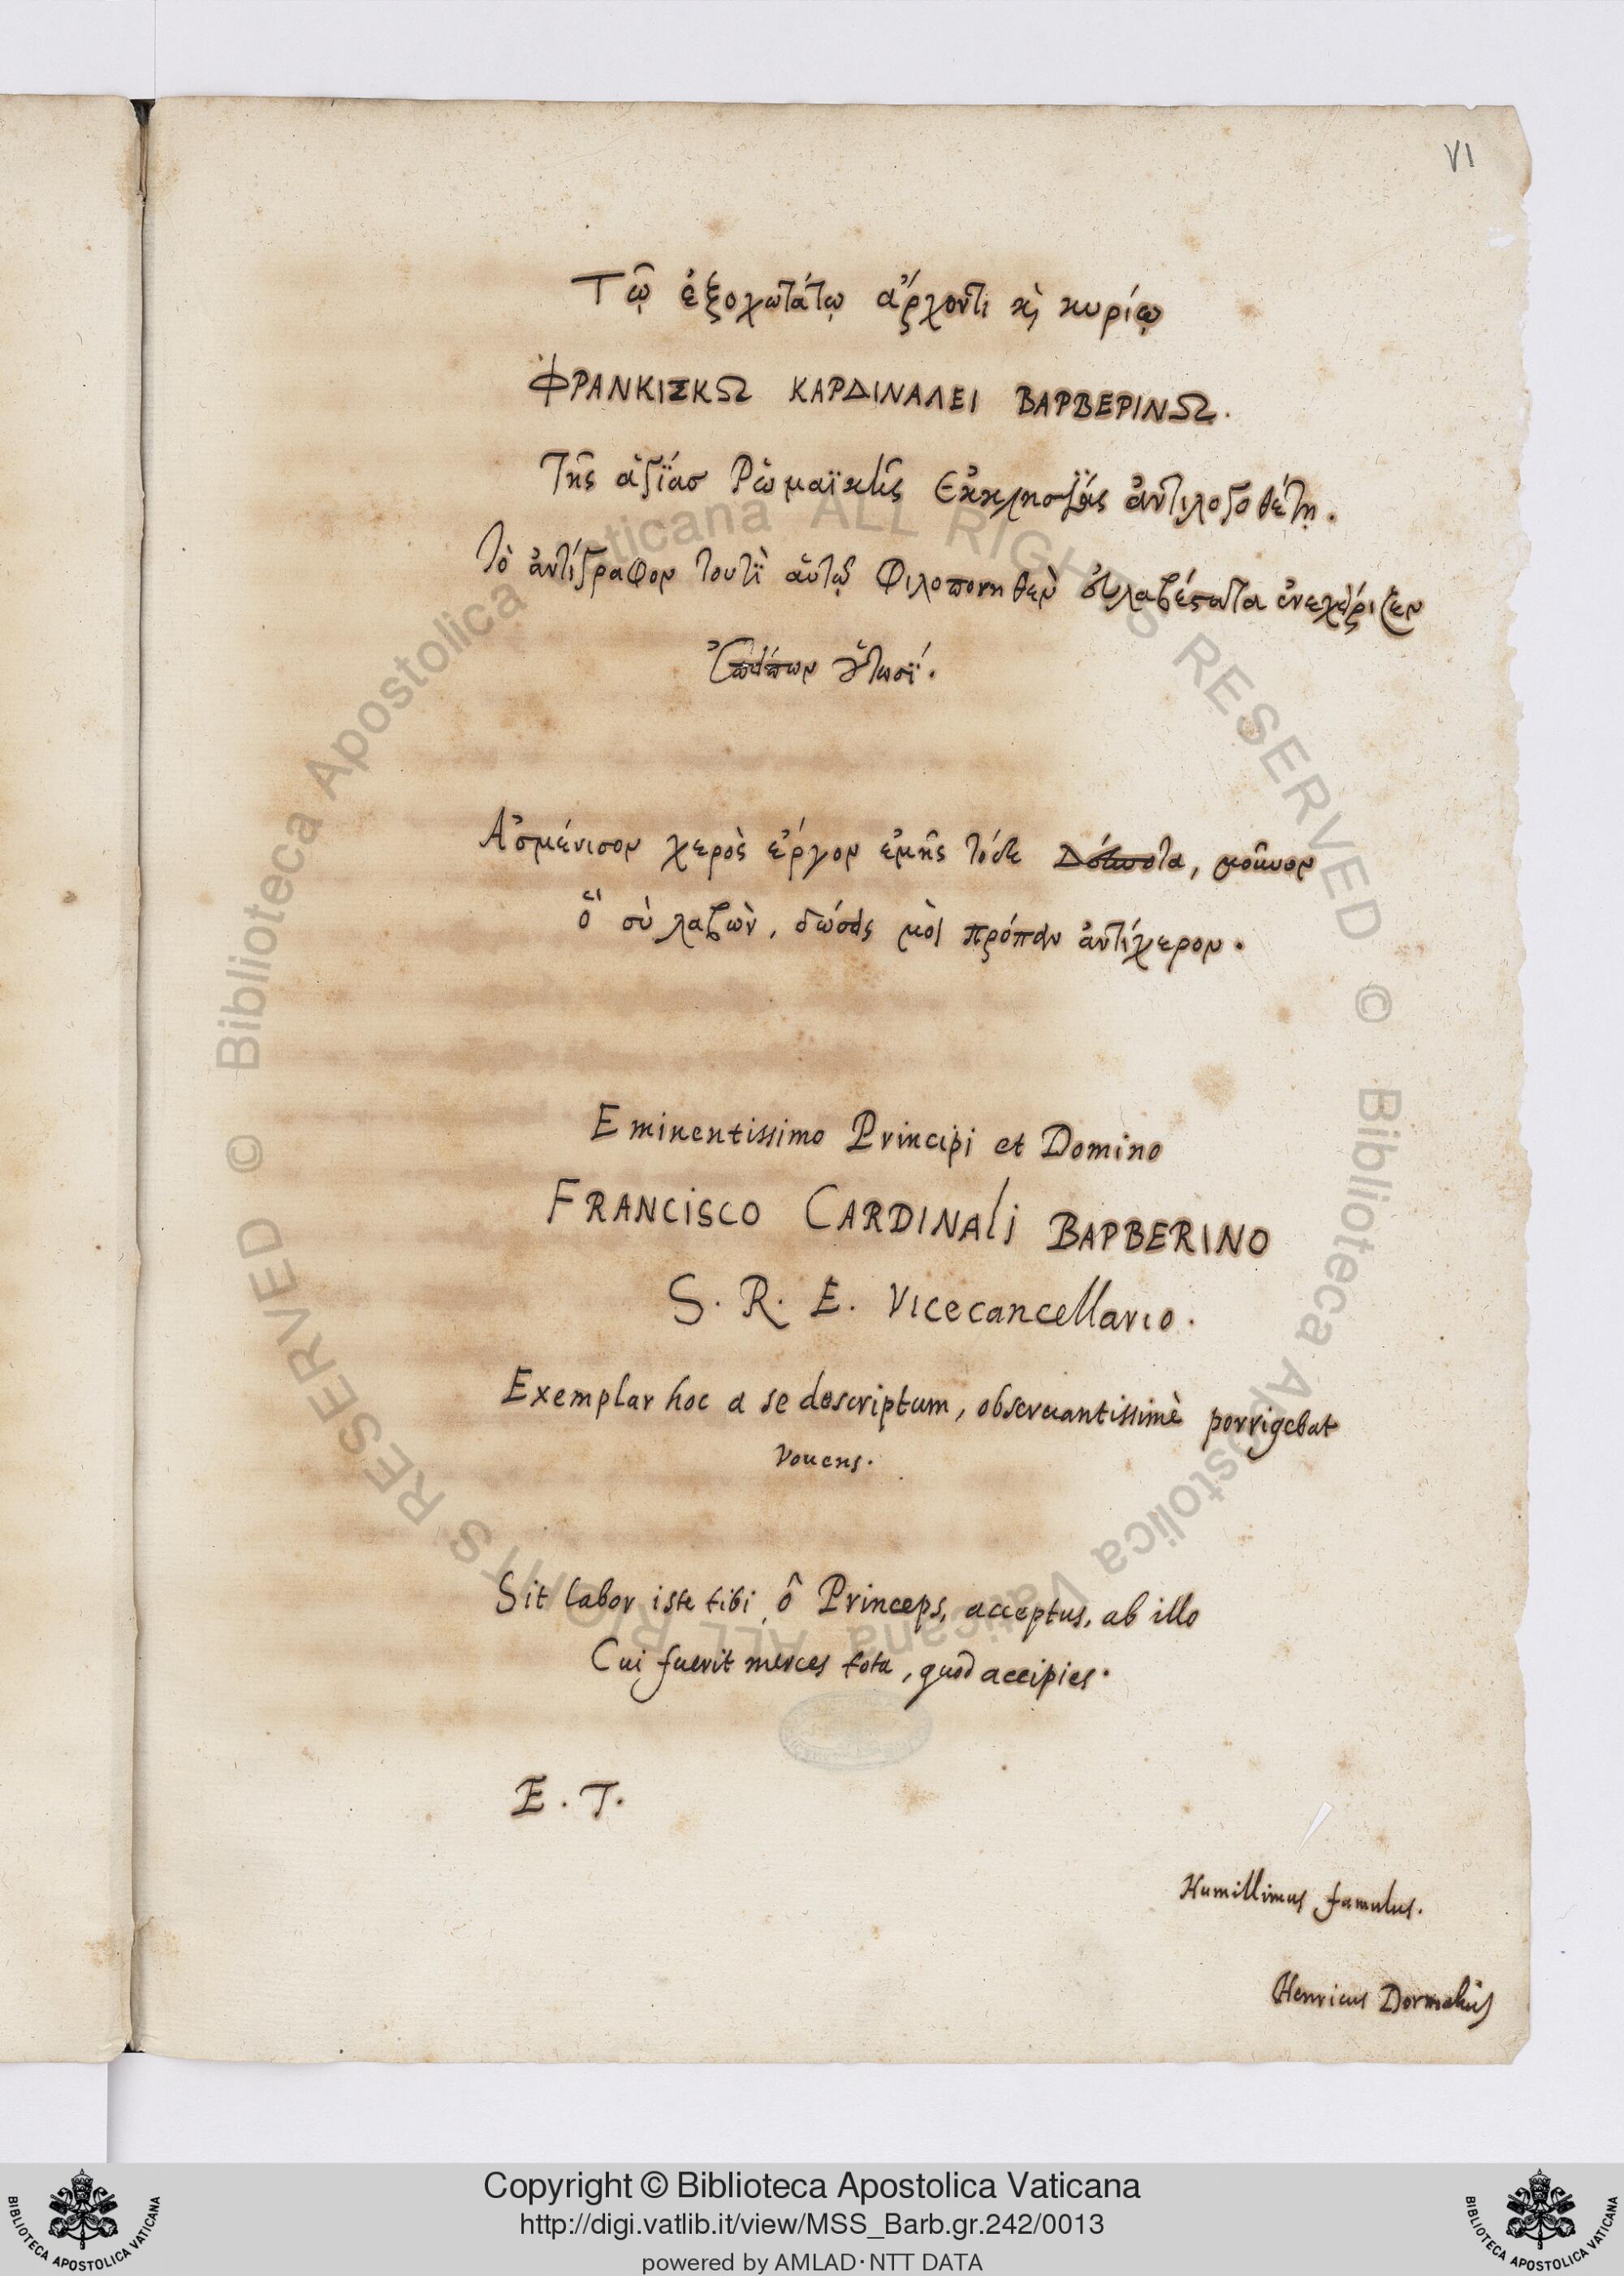 VI
Τῷ ἐξοχωτάτῳ ἄρχοντι κὶ κυρίῳ
ΦΡΑΝΚΙΣΚΩ ΚΑΡΔΙΝΑΛΕΙ ΒΑΡΒΕΡΙΝΩ.
Τῆς ἁγίας Ρωμαϊκῆς Ἐκκλησίας ἀντιλογοθέτῃ.
Τὸ ἀντίγραφον τουτὶ αὐτῷ φιλοπονηθὲν εὐλαβέστατα ἐνεχείριζεν
οὑτωσί.
Ἀσμένισον χερὸς ἔργον ἐμῆς τόδε, μοῦνον
ὅ σὺ λαβὼν, δώσεις μοὶ πρόπαν ἀντίχερον.
Eminentissimo Principi et Domino
FRANCISCO CARDINALi BAPBERINO
S. R. E. Vicecancellario.
Exemplar hoc a se descriptum, obseruantissimè porrigebat
Vouens.
Sit labor iste tibi, ô Princeps, acceptus, ab illo
Cui fuerit merces tota, quod accipies.
E. T.
Humillimus famulus.
Henricus Dormalius
© Biblioteca Apostolica Vaticana ALL RIGHTS RESERVED
© Biblioteca Apostolica Vaticana ALL RIGHTS RESERVED
Copyright © Biblioteca Apostolica Vaticana
http://digi.vatlib.it/view/MSS_Barb.gr.242/0013
powered by AMLAD·NTT DATA
BIBLIOTECA APOSTOLICA VATICANA
BIBLIOTECA APOSTOLICA VATICANA